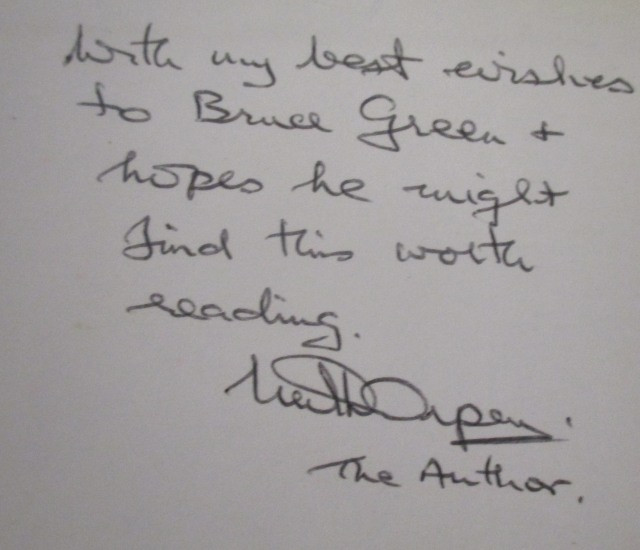 With my best wishes
to Bruce Green +
hopes he might
find this worth
reading.
The Author.